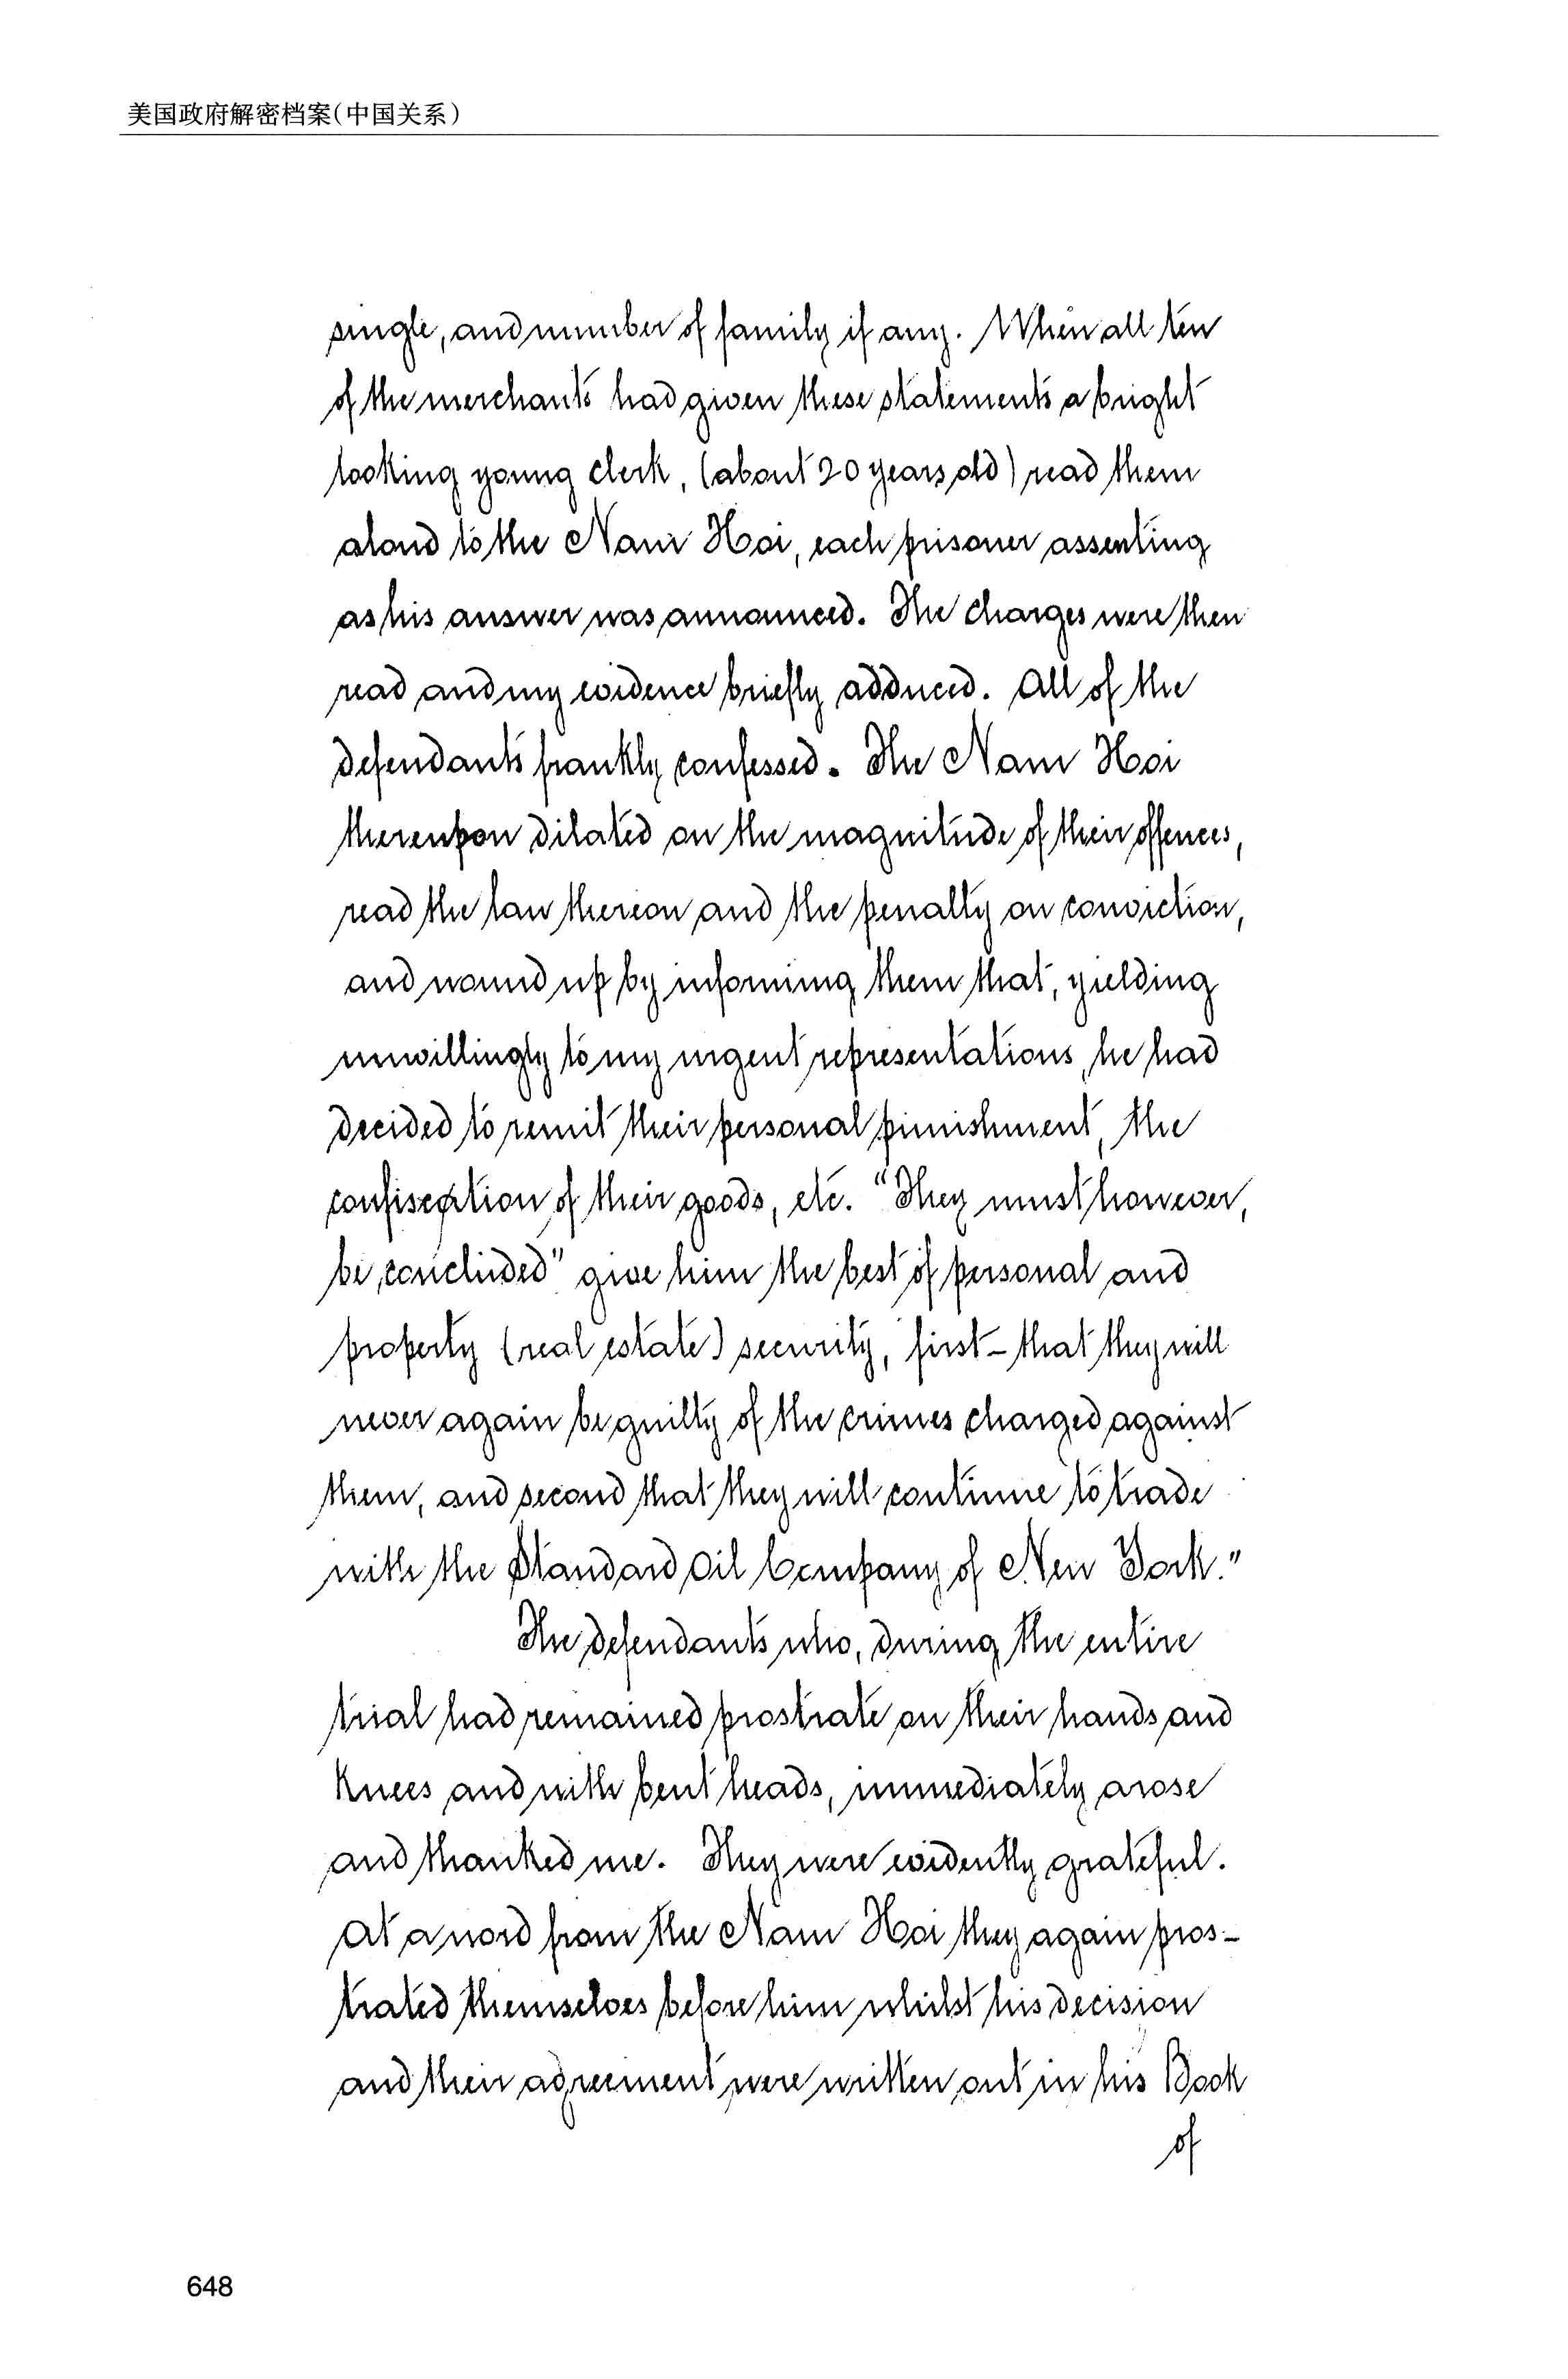 美国政府解密档案(中国关系)
single, and number of family if any. When all ten
of the merchants had given these statements a bright
looking young clerk, (about 20 years old) read them
aloud to the Nam Hoi, each prisoner assenting
as his answer was announced. The charges were then
read and my evidence briefly adduced. All of the
defendants frankly confessed. The Nam Hoi
thereupon dilated on the magnitude of their offences,
read the law thereon and the penalty on conviction,
and wound up by informing them that, yielding
unwillingly to my urgent representations, he had
decided to remit their personal punishment, the
confiscation of their goods, etc. "They must however,
be concluded" give him the best of personal and
property (real estate) security, first - that they will
never again be guilty of the crimes charged against
them, and second that they will continue to trade
with the Standard Oil Company of New York."
The defendants who, during the entire
trial had remained prostrate on their hands and
knees and with bent heads, immediately arose
and thanked me. They were evidently grateful.
At a word from the Nam Hoi they again pros-
trated themselves before him whilst his decision
and their agreement were written out in his Book
of
648